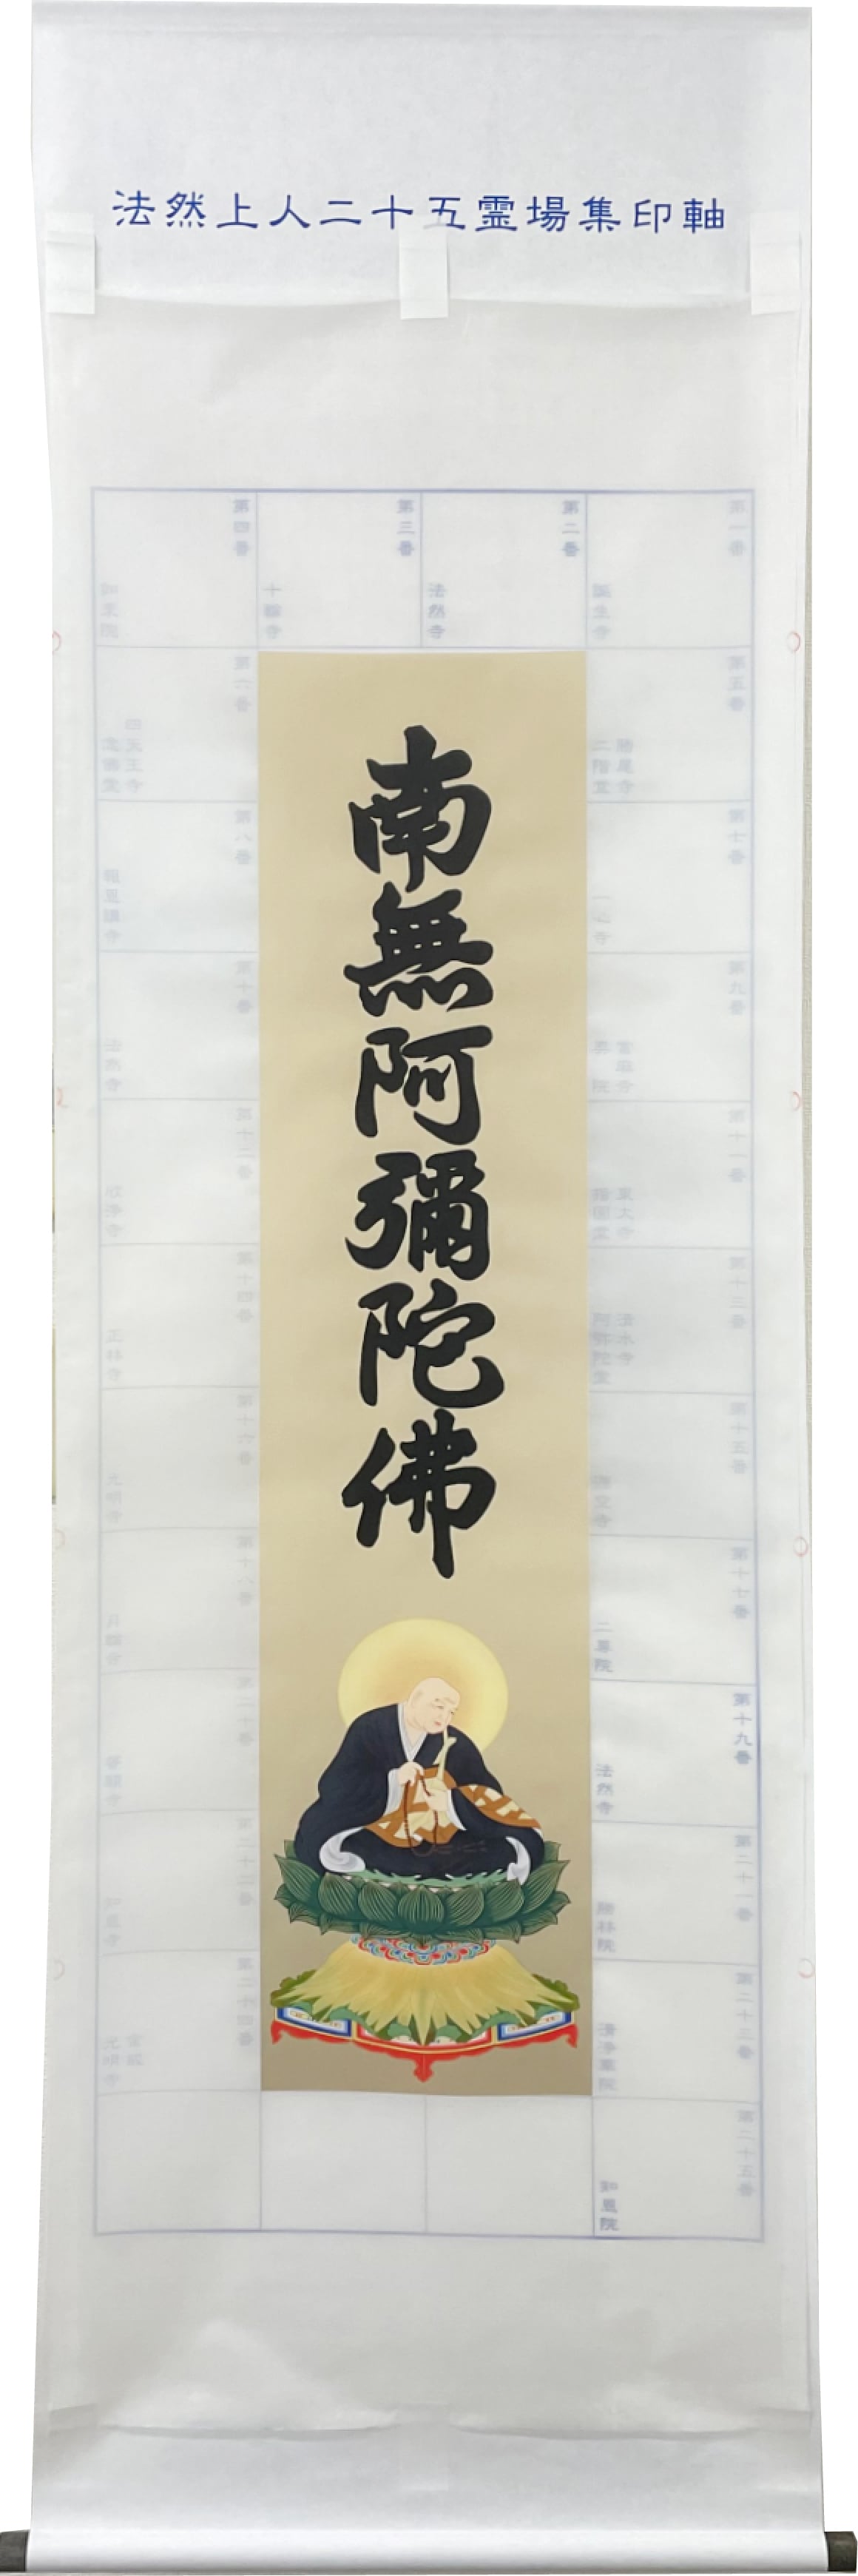 法然上人二十五霊場集印軸
第一番
誕生寺
第二番
法然寺
第三番
十輪寺
第四番
如来院
第五番
勝尾寺
二階堂
第六番
四天王寺
念佛堂
第七番
一心寺
第八番
報恩講寺
第九番
當麻寺
奥院
第十番
第十一番
東大寺
指図堂
第十二番
欣浄寺
第十三番
清水寺
阿弥陀堂
第十四番
正林寺
第十五番
源空寺
第十六番
光明寺
第十七番
二尊院
第十八番
月輪寺
第十九番
法然寺
第二十番
誓願寺
第二十一番
勝林院
第二十二番
第二十三番
清浄華院
第二十四番
金戒
光明寺
第二十五番
知恩院
南無阿彌陀佛